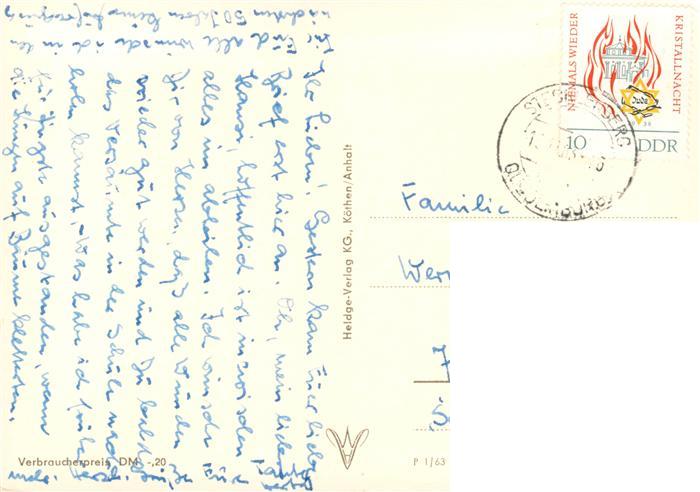 Ihr Lieben! Gestern kam Euer lieber
Brief erst hier an. Oh, mein lieber
Hansi, hoffentlich ist inzwischen
alles im abheilen. Ich wünsche
Dir von Herzen, daß alle Wunden
wieder gut werden und Du bald
das Versäumte in der Schule nach
holen kannst. Was habe ich früher
für Ängste ausgestanden, wenn
die Jungen auf Bäume kletterten.
für Euch alle wünsche ich in den
nächsten 50 Jahren keine
Verbraucherpreis DM -,20
Heldge-Verlag KG., Köthen/Anhalt
P 1/63
Familie
Wer
NIEMALS WIEDER
KRISTALLNACHT
Jude
10
DDR
QUEDLINBURG